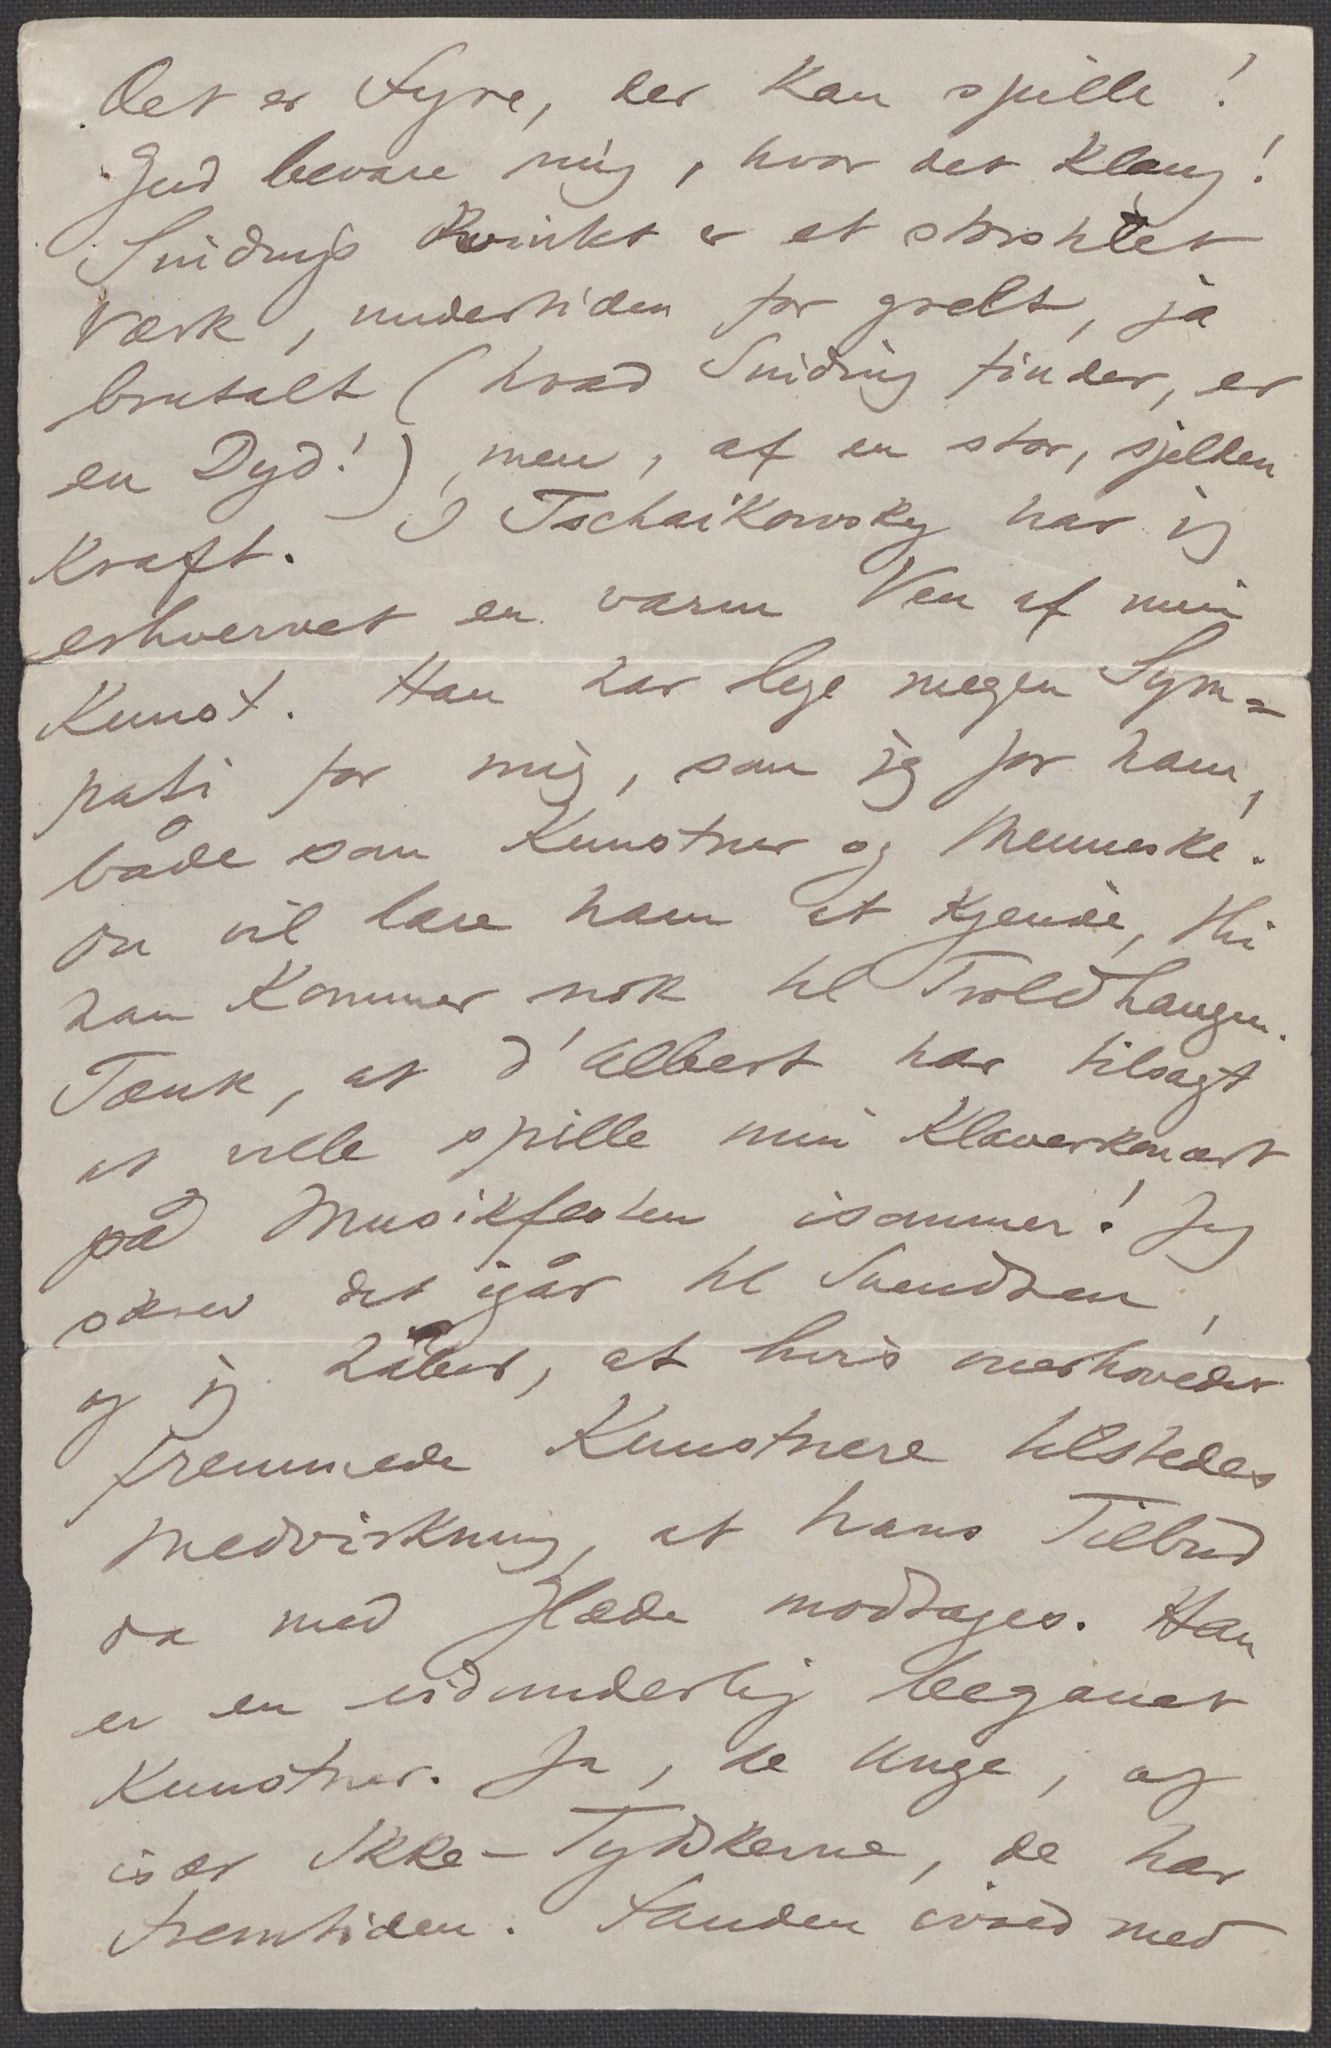 Det er Fyre, der kan spille!
Gud bevare mig, hvor det klang!
Sindings Kvintet er et storslået
Værk, undertiden for grelt, ja
brutalt (hvad Sinding finder, er
en Dyd!) men, af en stor, sjelden
Kraft. I Tschaikowsky har jeg
erhvervet en varm Ven af min
Kunst. Han har lige megen Sym=
pati for mig, som jeg for ham,
både som Kunstner og Menneske.
Du vil lære ham at kjende, thi
han kommer nok til Troldhaugen.
Tænk, at d'Albert har tilsagt
at ville spille min Klaverkoncert
på Musikfesten isommer! Jeg
skrev det igår til Svendsen,
og jeg håber, at hvis overhovedet
fremmede Kunstnere tilstedes
Medvirkning, at hans Tilbud
da med Glæde modtages. Han
er en vidunderlig begavet
Kunstner. Ja, de Unge, og
især Ikke-Tydskerne, de har
Fremtiden. Fanden ivold med